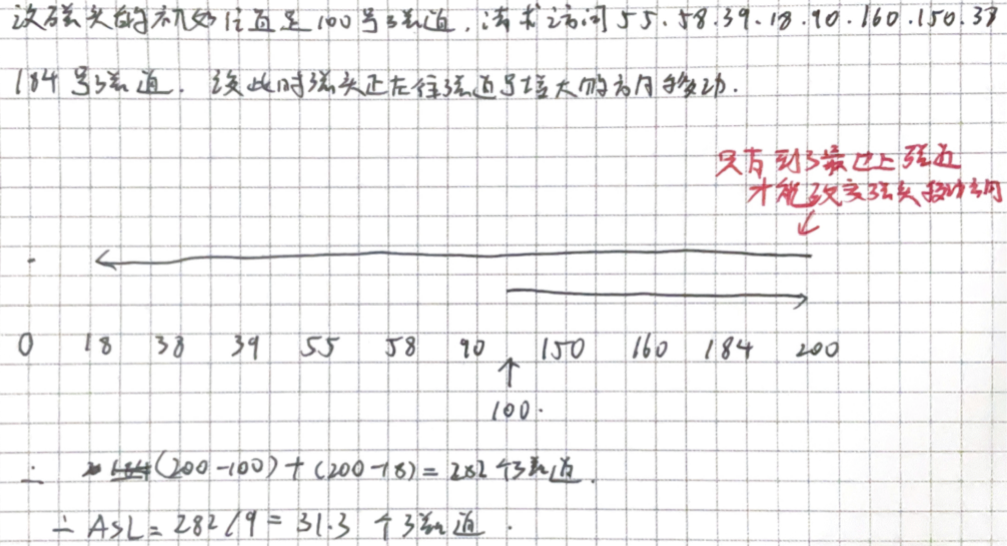 设磁头的初始位置是100号磁道,请求访问55.58.39.18.90.160.150.38
184号磁道. 设此时磁头正在往磁道号增大的方向移动.
只有到了最边上磁道
才能改变磁头移动方向
0 18 38 39 55 58 90 150 160 184 200
100.
∴ (200-100)+(200-18)=282个磁道.
∴ ASL=282/9=31.3 个磁道.